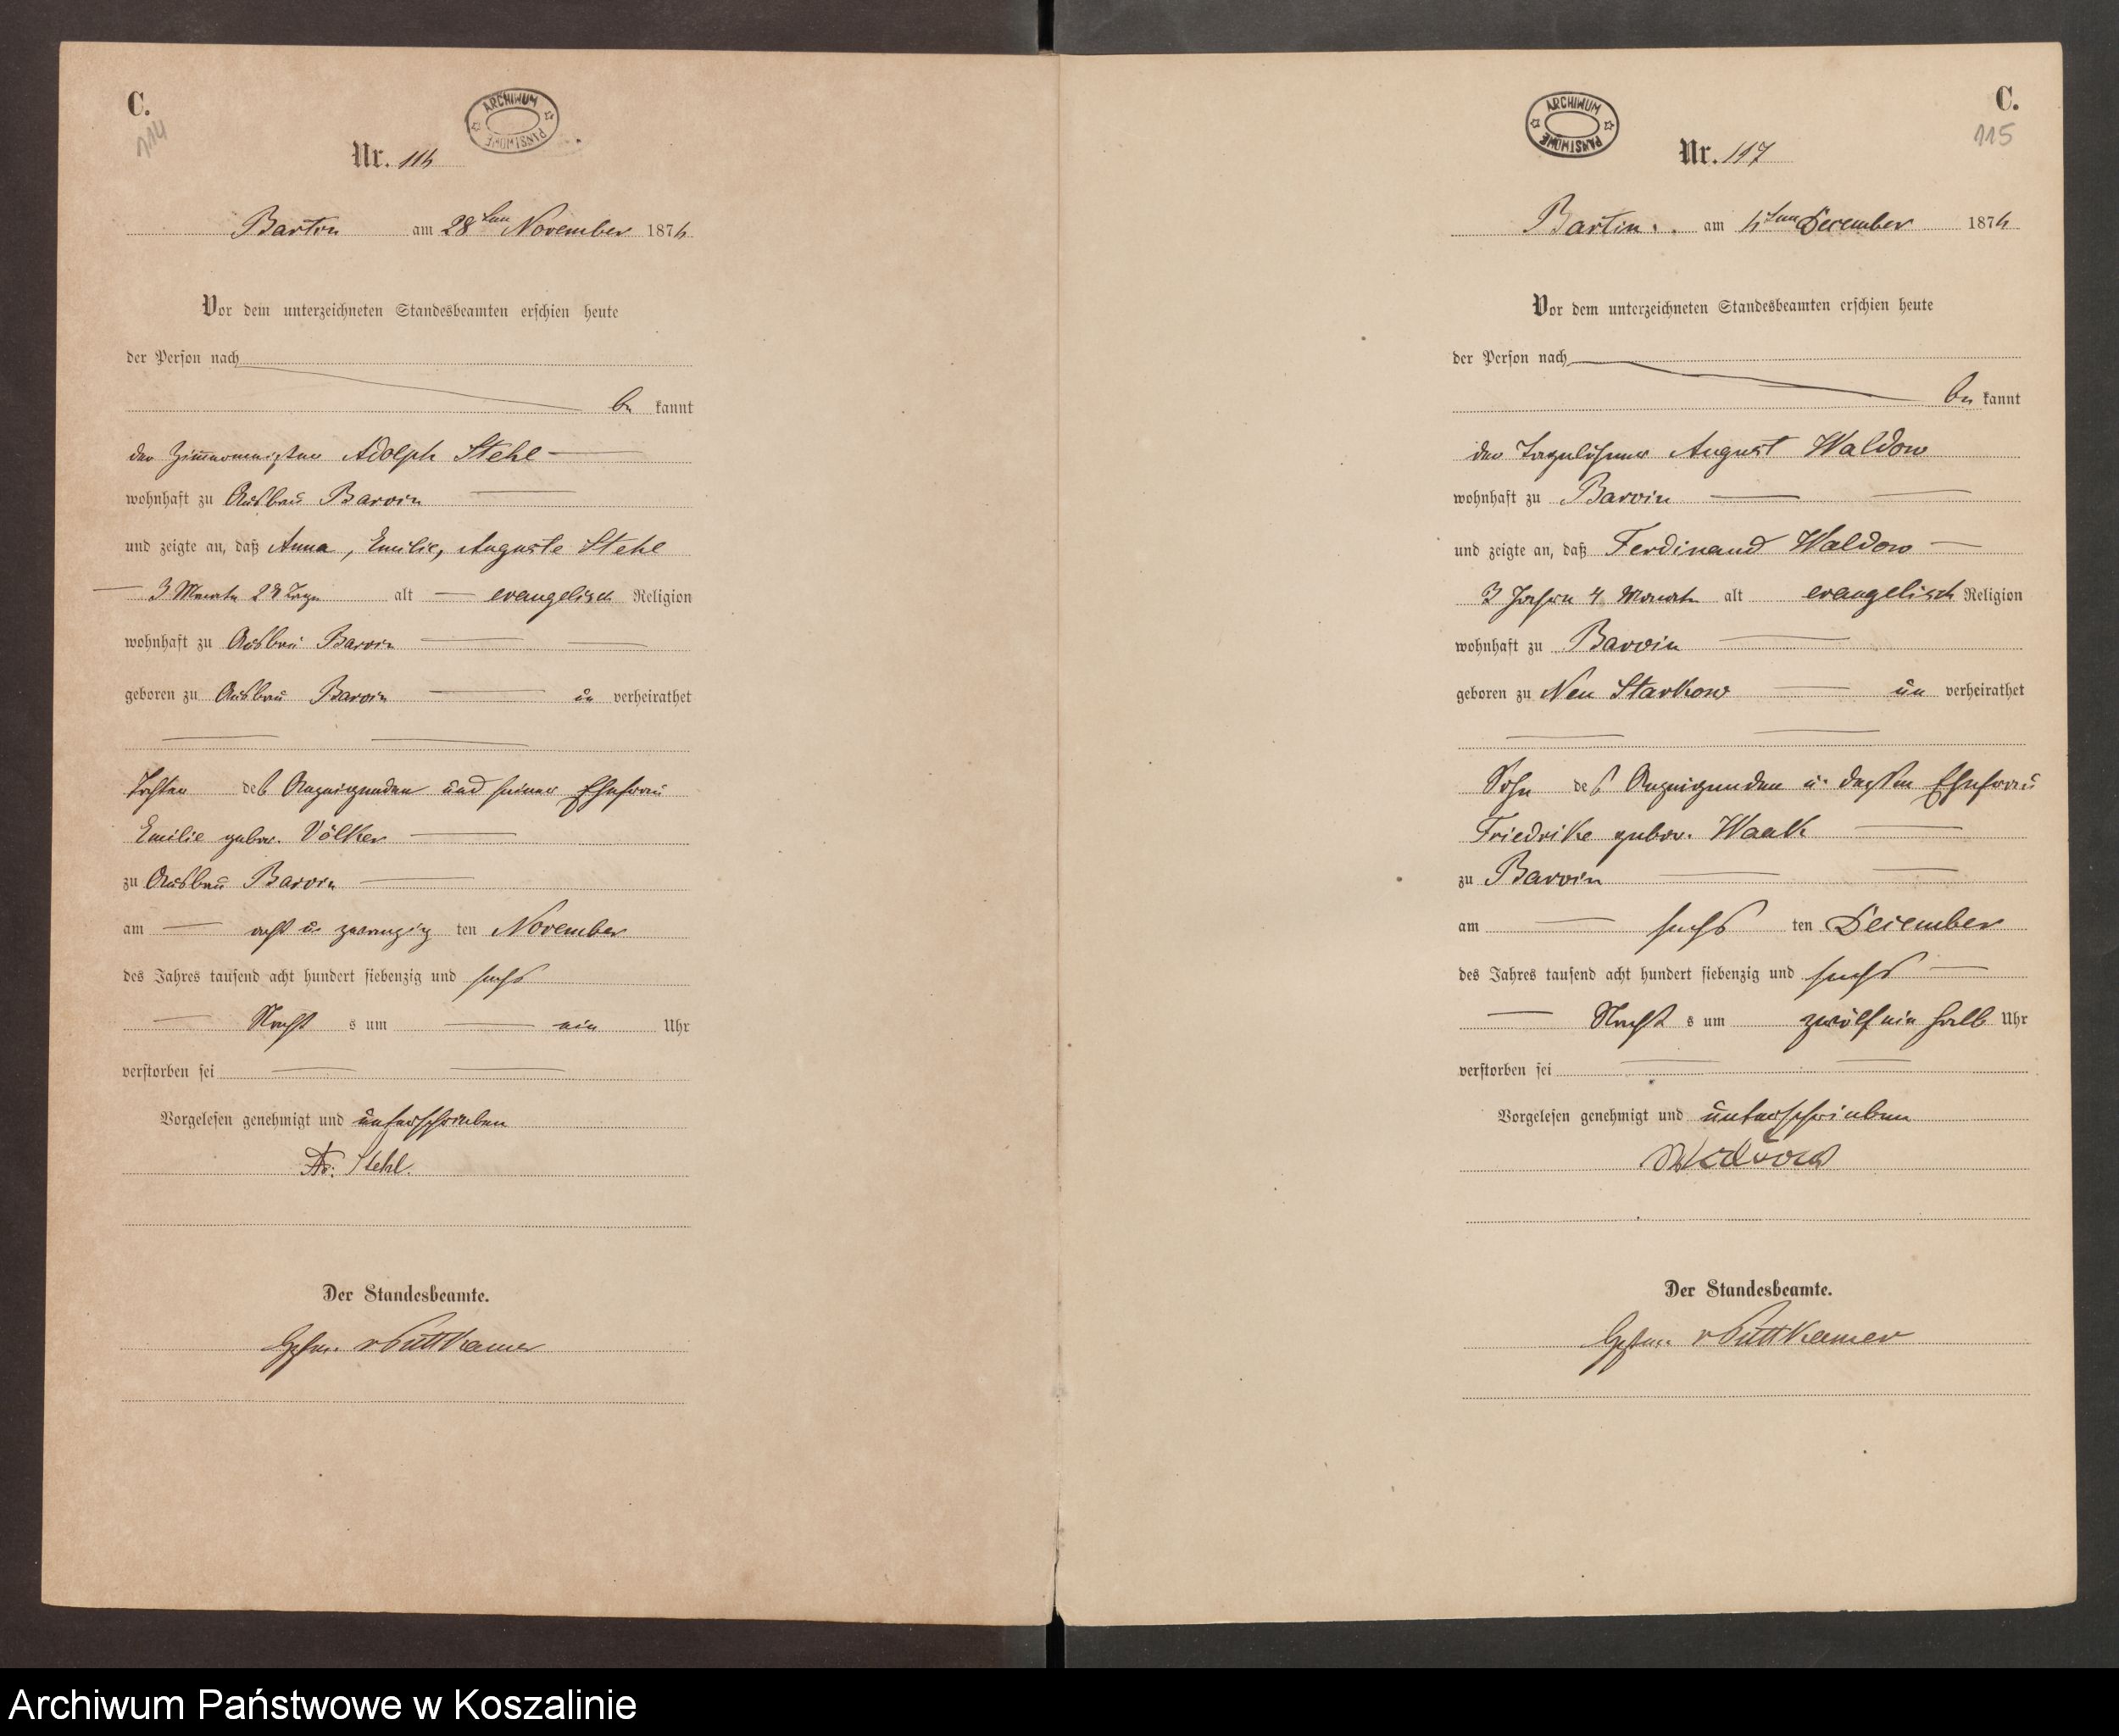 C.
114
ARCHIWUM PAŃSTWOWE
Nr. 116
Bartin am 28ten November 1876
Vor dem unterzeichneten Standesbeamten erschien heute
der Person nach
be kannt
der Zimmermeister Adolph Stehl
wohnhaft zu Ausbau Barvin
und zeigte an, daß Anna, Emilie, Auguste Stehl
3 Monate 28 Tage alt evangelisch Religion
wohnhaft zu Ausbau Barvin
geboren zu Ausbau Barvin un verheirathet
Tochter des Anzeigenden und seiner Ehefrau
Emilie gebor. Völker
zu Ausbau Barvin
am acht u zwanzig ten November
des Jahres tausend acht hundert siebenzig und sechs
Nacht s um ein Uhr
verstorben sei
Vorgelesen genehmigt und unterschrieben
Stehl.
Der Standesbeamte.
v Puttkamer
C.
115
ARCHIWUM PAŃSTWOWE
Nr. 117
Bartin am 6ten December 1876
Vor dem unterzeichneten Standesbeamten erschien heute
der Person nach
be kannt
der Tagelöhner August Waldow
wohnhaft zu Barvin
und zeigte an, daß Ferdinand Waldow
3 Jahre 4 Monate alt evangelisch Religion
wohnhaft zu Barvin
geboren zu Neu Starkow un verheirathet
Sohn des Anzeigenden u. dessen Ehefrau
Friedrike gebor. Waak
zu Barvin
am sechs ten December
des Jahres tausend acht hundert siebenzig und sechs
Nacht s um zwölf ein halb Uhr
verstorben sei
Vorgelesen genehmigt und unterschrieben
Der Standesbeamte.
v Puttkamer
Archiwum Państwowe w Koszalinie